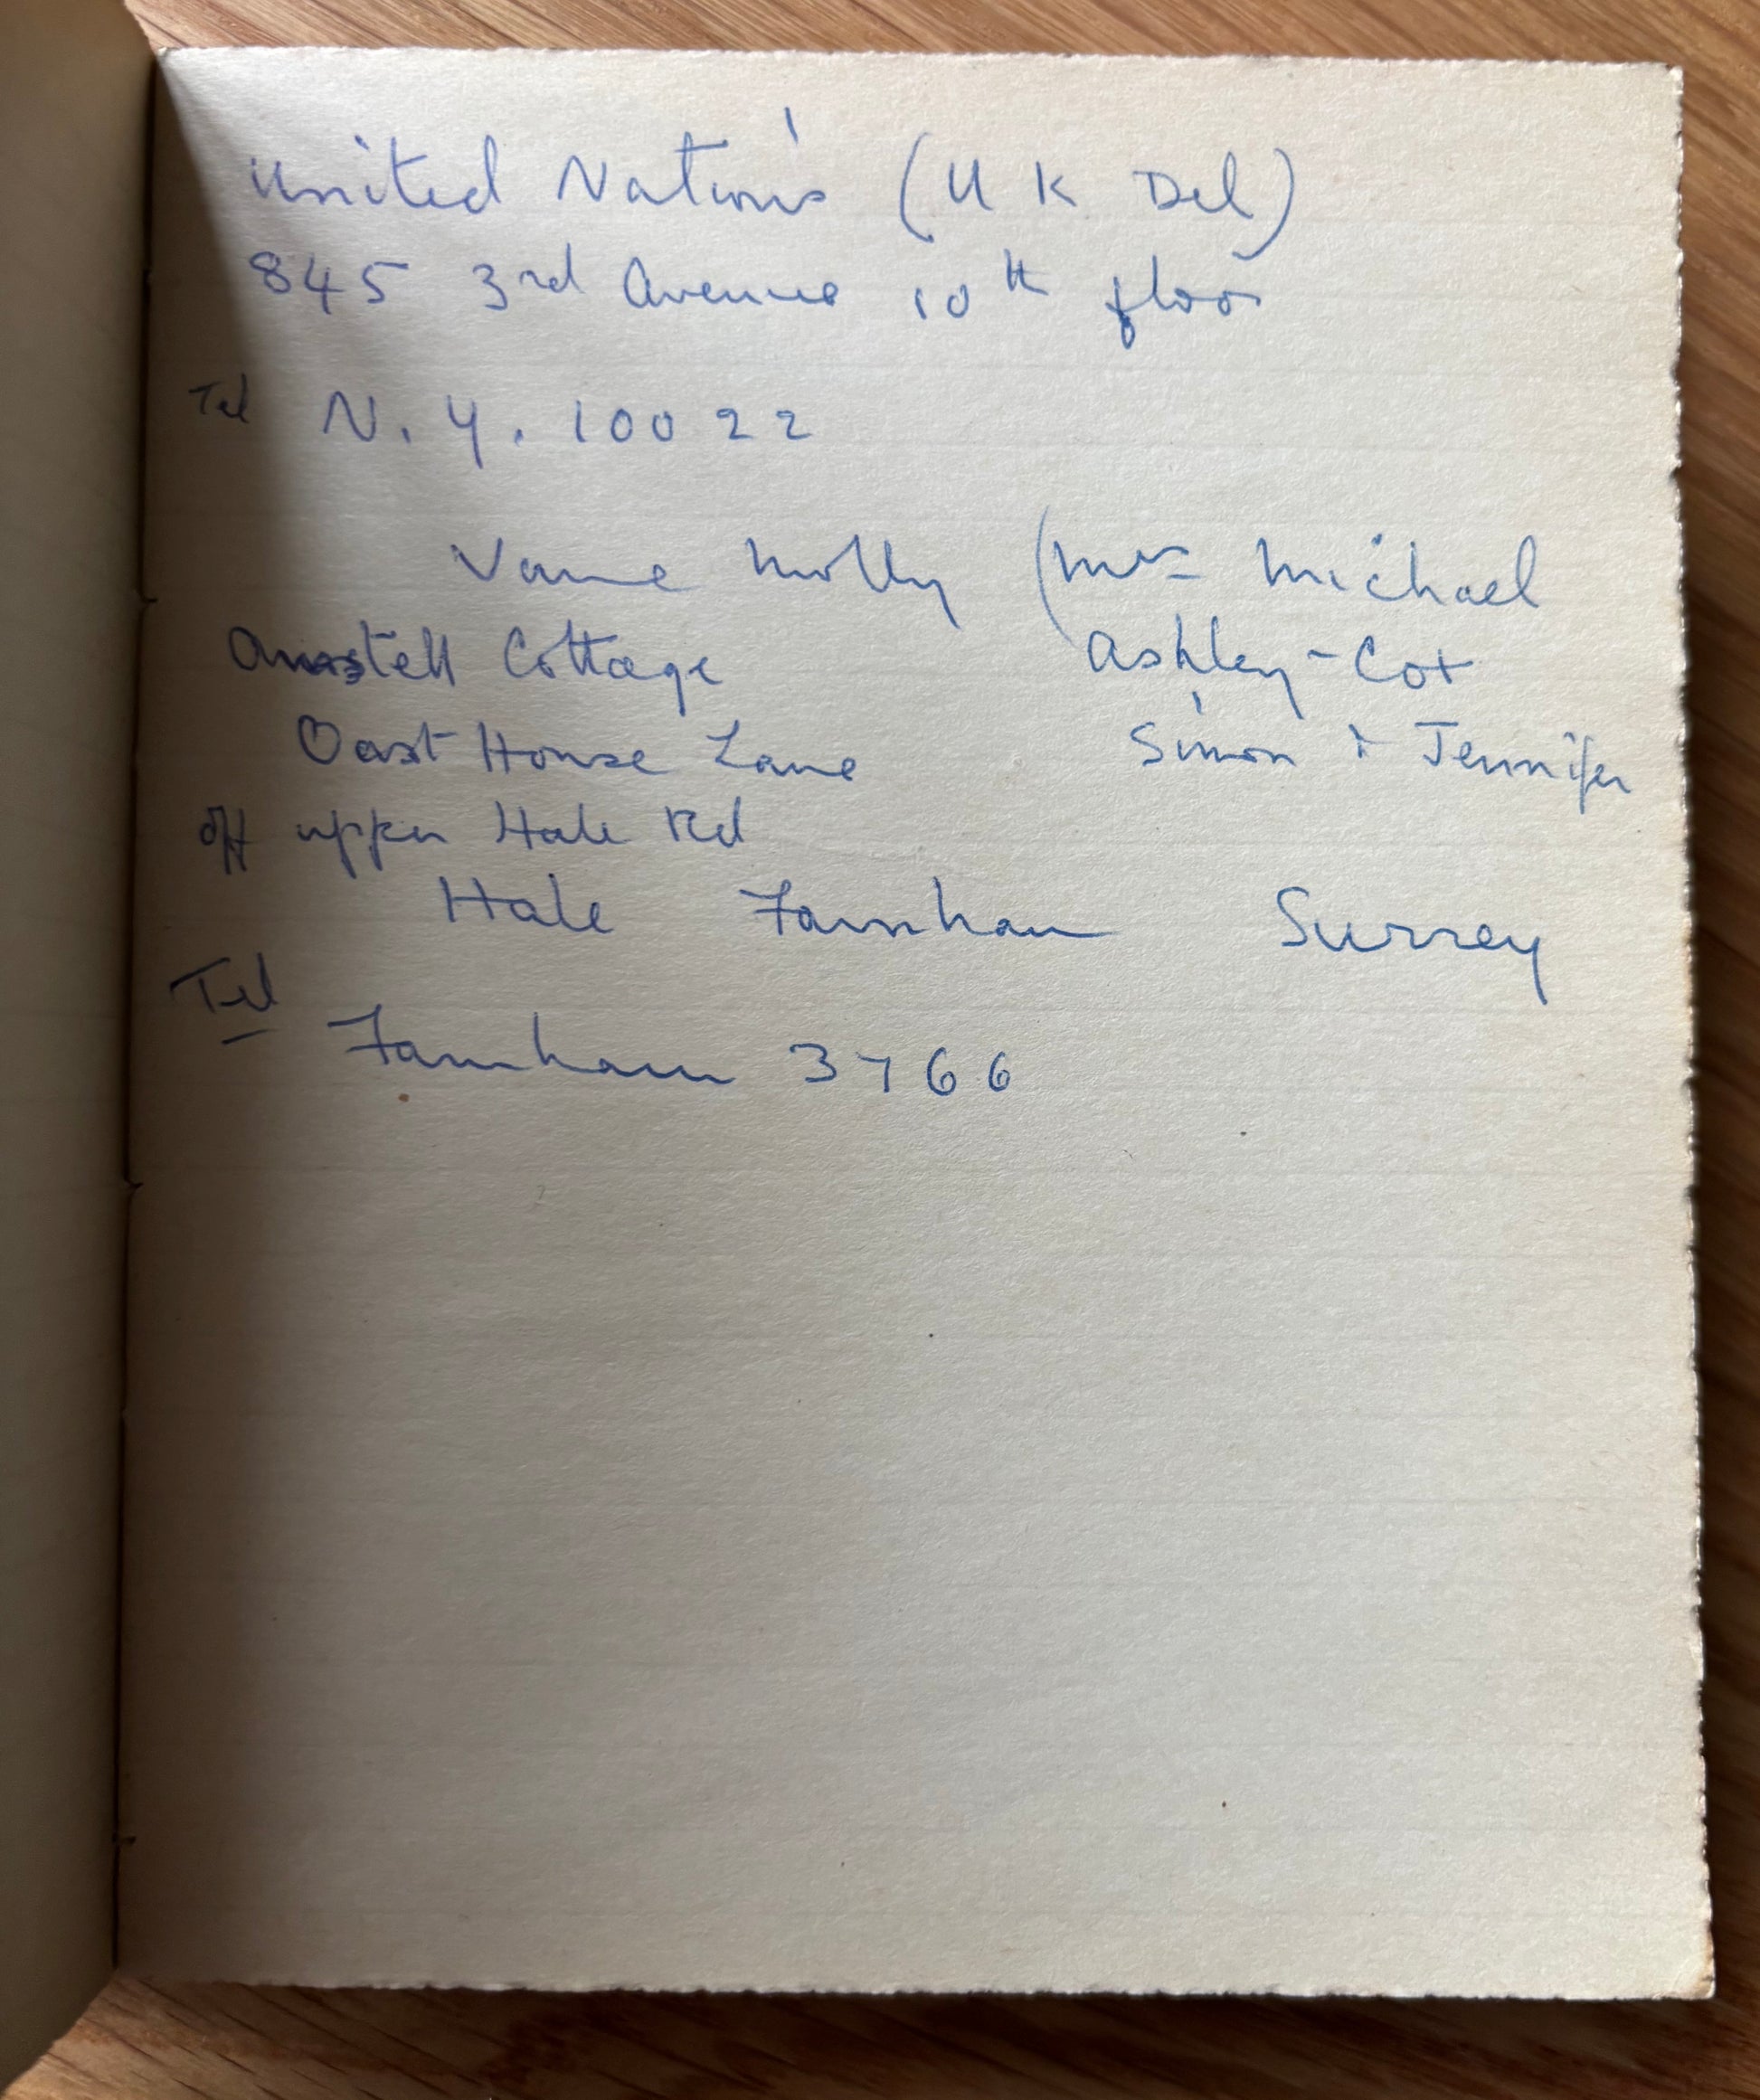 United Nations (UK Del)
845 3rd Avenue 10th floor
Tel N.Y. 10022
Vane Molly (Mrs Michael
Cottage Ashley-Cox
Oast House Lane Simon & Jennifer
off upper Hale Rd
Hale Farnham Surrey
Tel
Farnham 3766